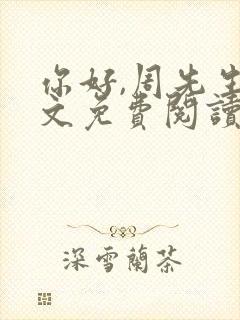 你好,周先生
文免费閱讀
深雪蘭茶